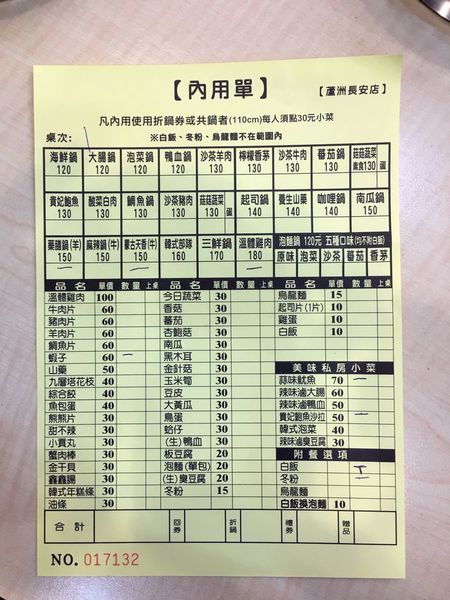 【內用單】
【蘆洲長安店】
凡內用使用折鍋券或共鍋者(110cm)每人須點30元小菜
桌次：1
※白飯、冬粉、烏龍麵不在範圍內
海鮮鍋 120 大腸鍋 120 泡菜鍋 120 鴨血鍋 120 沙茶羊肉 130 檸檬香茅 130 沙茶牛肉 130 蕃茄鍋 130 菇菇蔬菜 素食130蛋
貴妃鮑魚 130 酸菜白肉 130 鯛魚鍋 130 沙茶豬肉 130 菇菇蔬菜 130蛋 起司鍋 140 養生山藥 140 咖哩鍋 140 南瓜鍋 150
藥膳鍋(羊) 150 麻辣鍋(牛) 150 蒙古天香(牛) 150 韓式部隊 160 三鮮鍋 170 溫體雞肉 180
泡麵鍋 120元 五種口味(均不附白飯)
原味 泡菜 沙茶 蕃茄 香茅
品名 單價 數量 上桌 品名 單價 數量 上桌 品名 單價 數量 上桌
溫體雞肉 100 今日蔬菜 30 烏龍麵 15
牛肉片 60 香菇 30 起司片(1片) 10
豬肉片 60 蕃茄 30 雞蛋 10
羊肉片 60 杏鮑菇 30 白飯 10
鯛魚片 60 南瓜 30
蝦子 60 黑木耳 30 美味私房小菜
山藥 50 金針菇 30 蒜味魷魚 70
九層塔花枝 40 玉米筍 30 辣味滷大腸 60
綜合餃 40 豆皮 30 辣味滷鴨血 50
魚包蛋 40 大黃瓜 30 貴妃鮑魚沙拉 50
熊熊片 30 鳥蛋 30 韓式泡菜 40
甜不辣 30 蛤仔 30 辣味滷臭豆腐 30
小貢丸 30 (生)鴨血 30 附餐選項
蟹肉棒 30 板豆腐 20 白飯
金干貝 30 泡麵(單包) 20 冬粉
鑫鑫腸 30 (生)臭豆腐 20 烏龍麵
韓式年糕條 30 冬粉 15 白飯換泡麵 10
油條 30
合計 回券 折鍋 禮券 贈品
NO. 017132